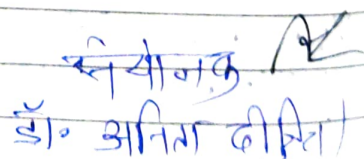 संयोजक
डॉ. अनिता दीक्षित